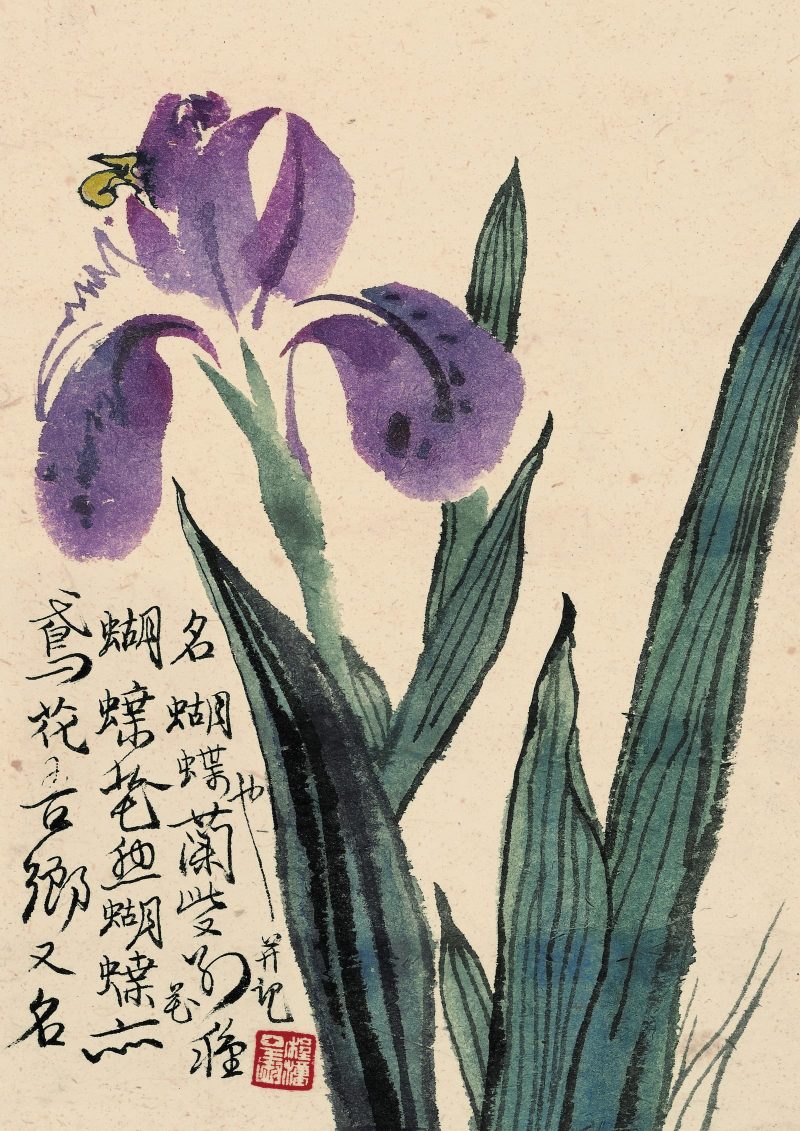 鳶花吾鄉又名
蝴蝶花蝴蝶花亦
名蝴蝶蘭別種
也
并記